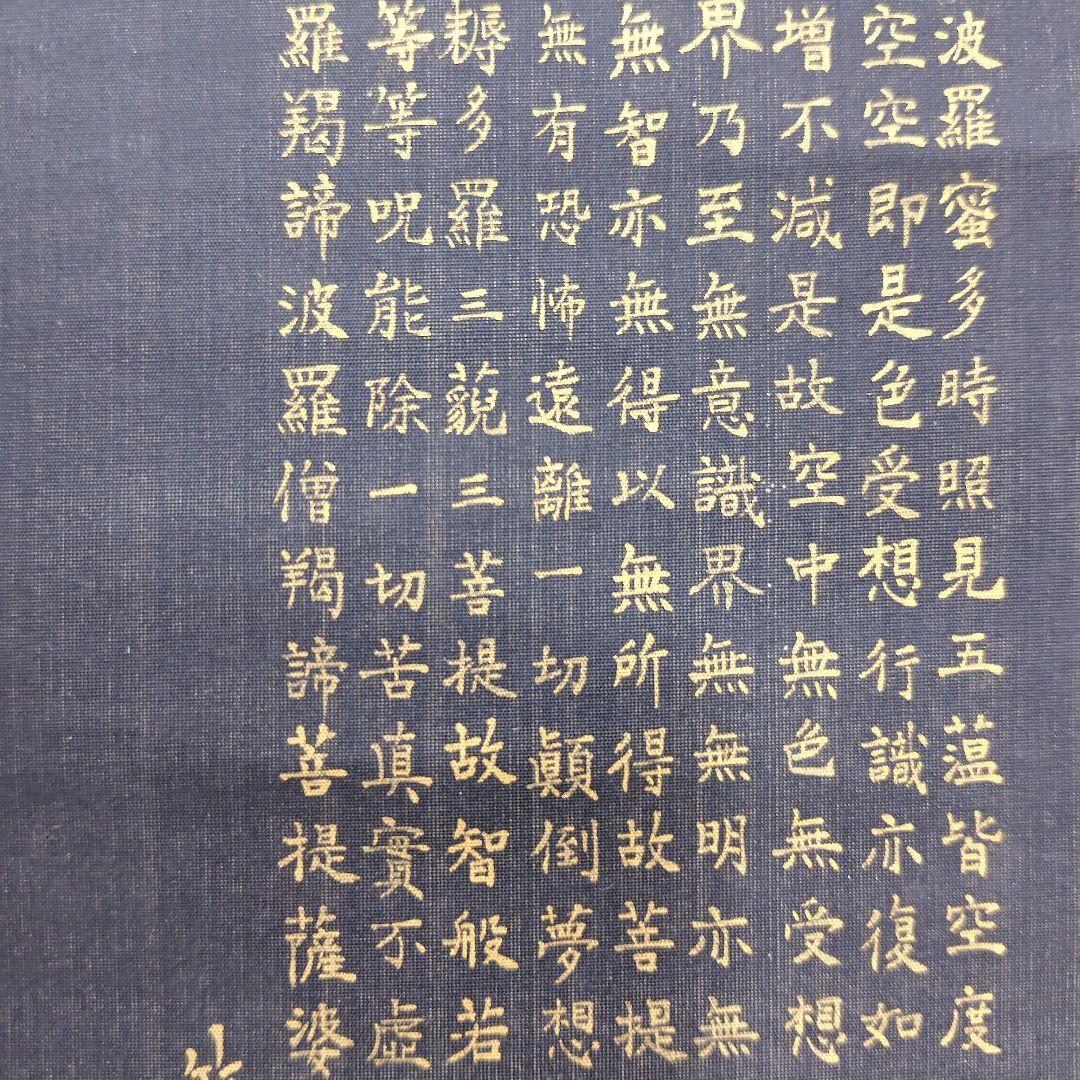 波羅蜜多時照見五蕰皆空度
空空即是色受想行識亦復如
增不減是故空中無色無受想
界乃至無意識界無無明亦無
無智亦無得以無所得故菩提
無有恐怖遠離一切顛倒夢想
耨多羅三藐三菩提故智般若
等等呪能除一切苦真實不虛
羅羯諦波羅僧羯諦菩提薩婆